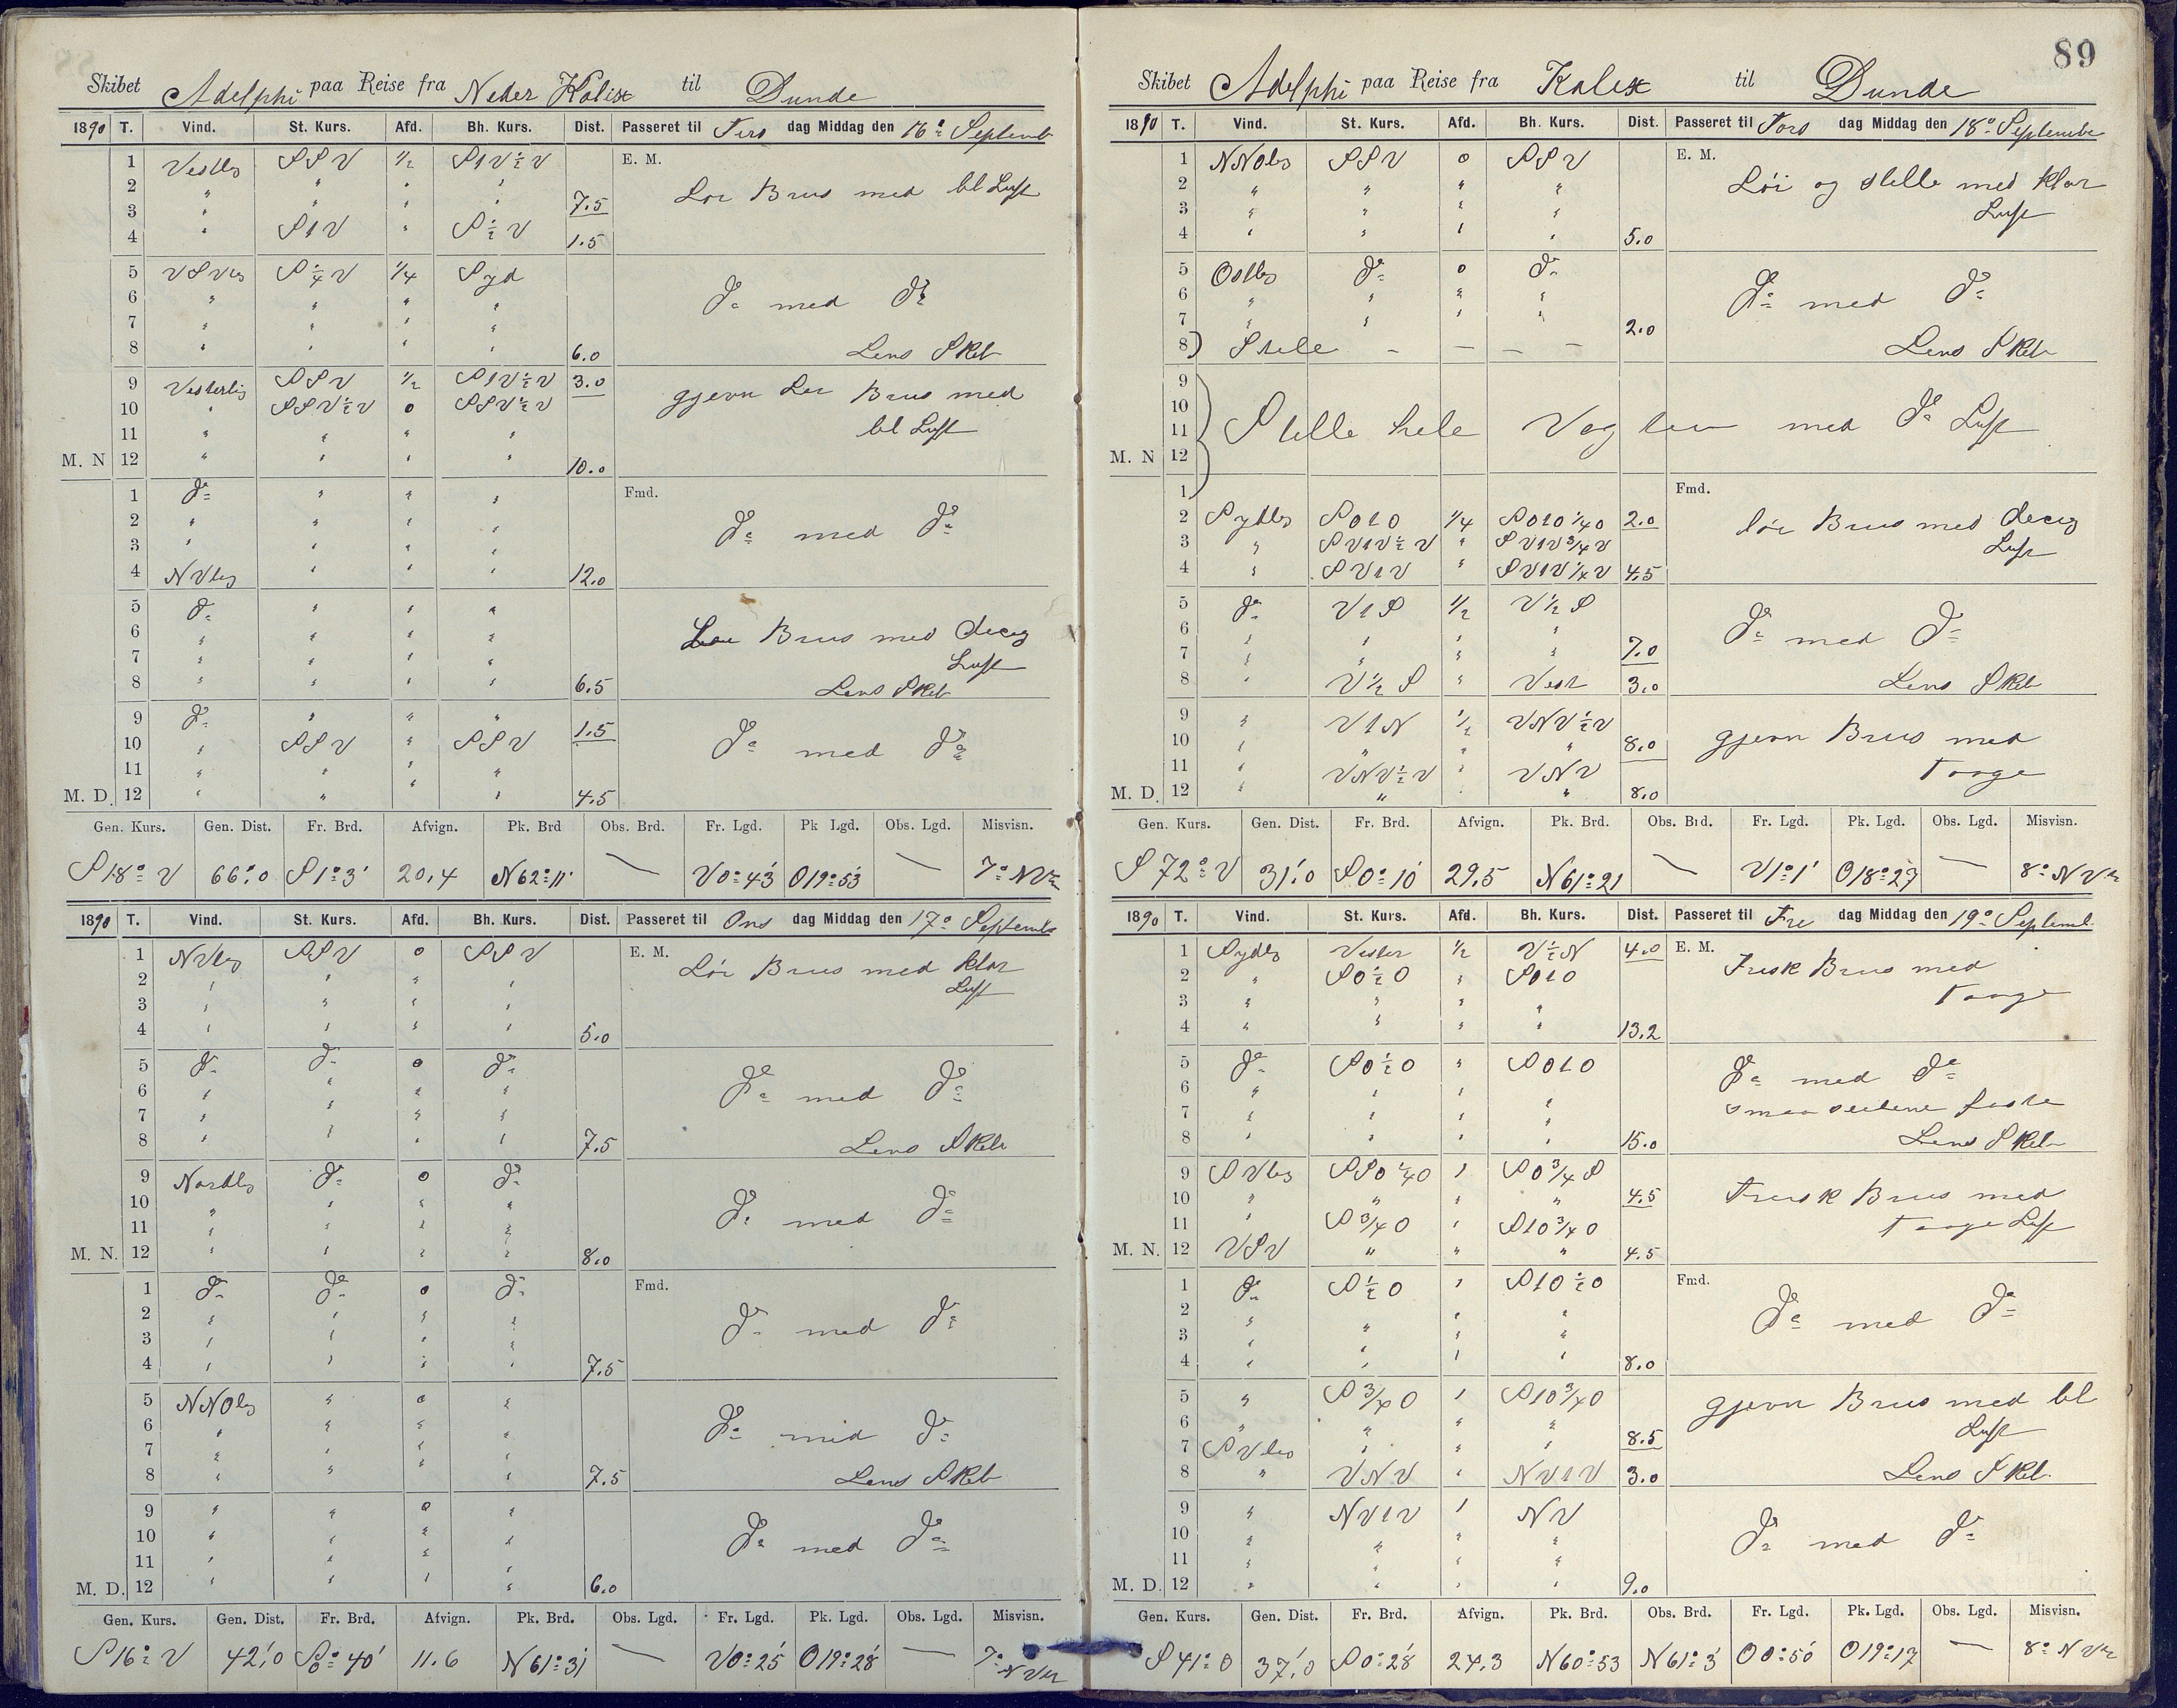 Skibet Adelphi paa Reise fra Neder Kalix til Dunde
1890 T. Vind. St. Kurs. Afd. Bh. Kurs. Dist. Passeret til Tirs dag Middag den 16de Septemb
1 Vestlig SSV 1/2 S1V½V E. M.
2 " " " " Lør Brus med bl Luft
3 " " " " 7.5
4 " S1V " S½V 1.5
5 VSVlig S¼V 1/4 Syd
6 " " " " Do med Do
7 " " " "
8 " " " " 6.0 Lens Skib
9 Vesterlig SSV 1/2 S1V½V 3.0 gjevn Lør Brus med
10 " SSV½V 0 SSV½V
11 " " " " bl Luft
M. N 12 " " " " 10.0
1 Do " " " Fmd.
2 " " " " Do med Do
3 " " " "
4 NVlig " " " 12.0
5 Do " " "
6 " " " " Brus med diesig
7 " " " " Luft
8 " " " " 6.5 Lens Skib
9 Do " " " 1.5
10 " SSV " SSV Do med Do
11 " " " "
M. D. 12 " " " " 4.5
Gen. Kurs. Gen. Dist. Fr. Brd. Afvign. Pk. Brd Obs. Brd. Fr. Lgd. Pk Lgd. Obs. Lgd. Misvisn.
S18°V 66'.0 S1°3' 20.4 N62°11' — V0°43' O19°53 — 7° NV
1890 T. Vind. St. Kurs. Afd. Bh. Kurs. Dist. Passeret til Ons dag Middag den 17de Septemb
1 NVlig SSV 0 SSV E. M.
2 " " " " Lør Brus med klar
3 " " " " Luft
4 " " " " 5.0
5 Do Do 0 Do
6 " " " " Do med Do
7 " " " "
8 " " " " 7.5 Lens Skib
9 Nordlig Do 0 Do
10 " " " " Do med Do
11 " " " "
M. N. 12 " " " " 8.0
1 Do Do 0 Do Fmd.
2 " " " " Do med Do
3 " " " "
4 " " " " 7.5
5 NNOlig " 0 "
6 " " " " Do med Do
7 " " " "
8 " " " " 7.5 Lens Skib
9 " " 0 "
10 " " " " Do med Do
11 " " " "
M. D. 12 " " " " 6.0
Gen. Kurs. Gen. Dist. Fr. Brd. Afvign. Pk. Brd. Obs. Lgd. Fr. Lgd. Pk. Lgd. Obs. Lgd. Misvisn.
S16°V 42'.0 S0°40' 11.6 N61°31' — V0°25' O19°28' — 7° NV
89
Skibet Adelphi paa Reise fra Kalix til Dunde
1890 T. Vind. St. Kurs. Afd. Bh. Kurs. Dist. Passeret til Tors dag Middag den 18de Septembe
1 NNOlig SSV 0 SSV E. M.
2 " " " " Løi og stille med klar
3 " " " " Luft
4 " " " " 5.0
5 Ostlig Do 0 Do
6 " " " " Do med Do
7 " " " " 2.0
8 Stele - - - - Lens Skib
9
10
11 Stille hele Vagten med Do Luft
M. N 12
1 Fmd.
2 Sydlig SO1O 1/4 SO1O¼O 2.0 Lør Brus med diesig
3 " SV1V½V " SV1V¾V Luft
4 " SV1V " SV1V¼V 4.5
5 Do V1S 1/2 V½S
6 " " " " Do med Do
7 " " " " 7.0
8 " V½S " Vest 3.0 Lens Skib
9 " V1N 1/2 VNV½V
10 " " " " 8.0 gjevn Brus med
11 " VNV½V " VNV Taage
M. D. 12 " " " " 8.0
Gen. Kurs. Gen. Dist. Fr. Brd. Afvign. Pk. Brd. Obs. Brd. Fr. Lgd. Pk. Lgd. Obs. Lgd. Misvisn.
S72°V 31'.0 S0°10' 29.5 N61°21 — V1°1' O18°27 — 8° NV
1890 T. Vind. St. Kurs. Afd. Bh. Kurs. Dist. Passeret til Fre dag Middag den 19de Septemb.
1 Sydlig Vester 1/2 V½N 4.0 E. M.
2 " SO½O " SO1O Frisk Brus med
3 " " " " Taage
4 " " " " 13.2
5 Do SO½O " SO1O
6 " " " " Do med Do
7 " " " " smaa seilene faste
8 " " " " 15.0 Lens Skib
9 SVlig SSO¼O " SO¾S
10 " " " " 4.5 Frisk Brus med
11 " S¾O " S1O¾O Taage Luft
M. N. 12 VSV " " " 4.5
1 Do S½O " S1O½O Fmd.
2 " " " " Do med Do
3 " " " "
4 " " " " 8.0
5 " S¾O " S1O¾O gjevn Brus med bl
6 " " " " 8.5 Luft
7 SVlig " " "
8 " VNV " NV1V 3.0 Lens Skib.
9 " NV1V " NV
10 " " " " Do med Do
11 " " " "
M. D. 12 " " " " 9.0
Gen. Kurs. Gen. Dist. Fr. Brd. Afvign. Pk. Brd. Obs. Brd. Fr. Lgd. Pk. Lgd. Obs. Lgd. Misvisn.
S41°O 37'.0 S0°28' 24.3 N60°53 N61°3' O0°50' O19°17 — 8° NV